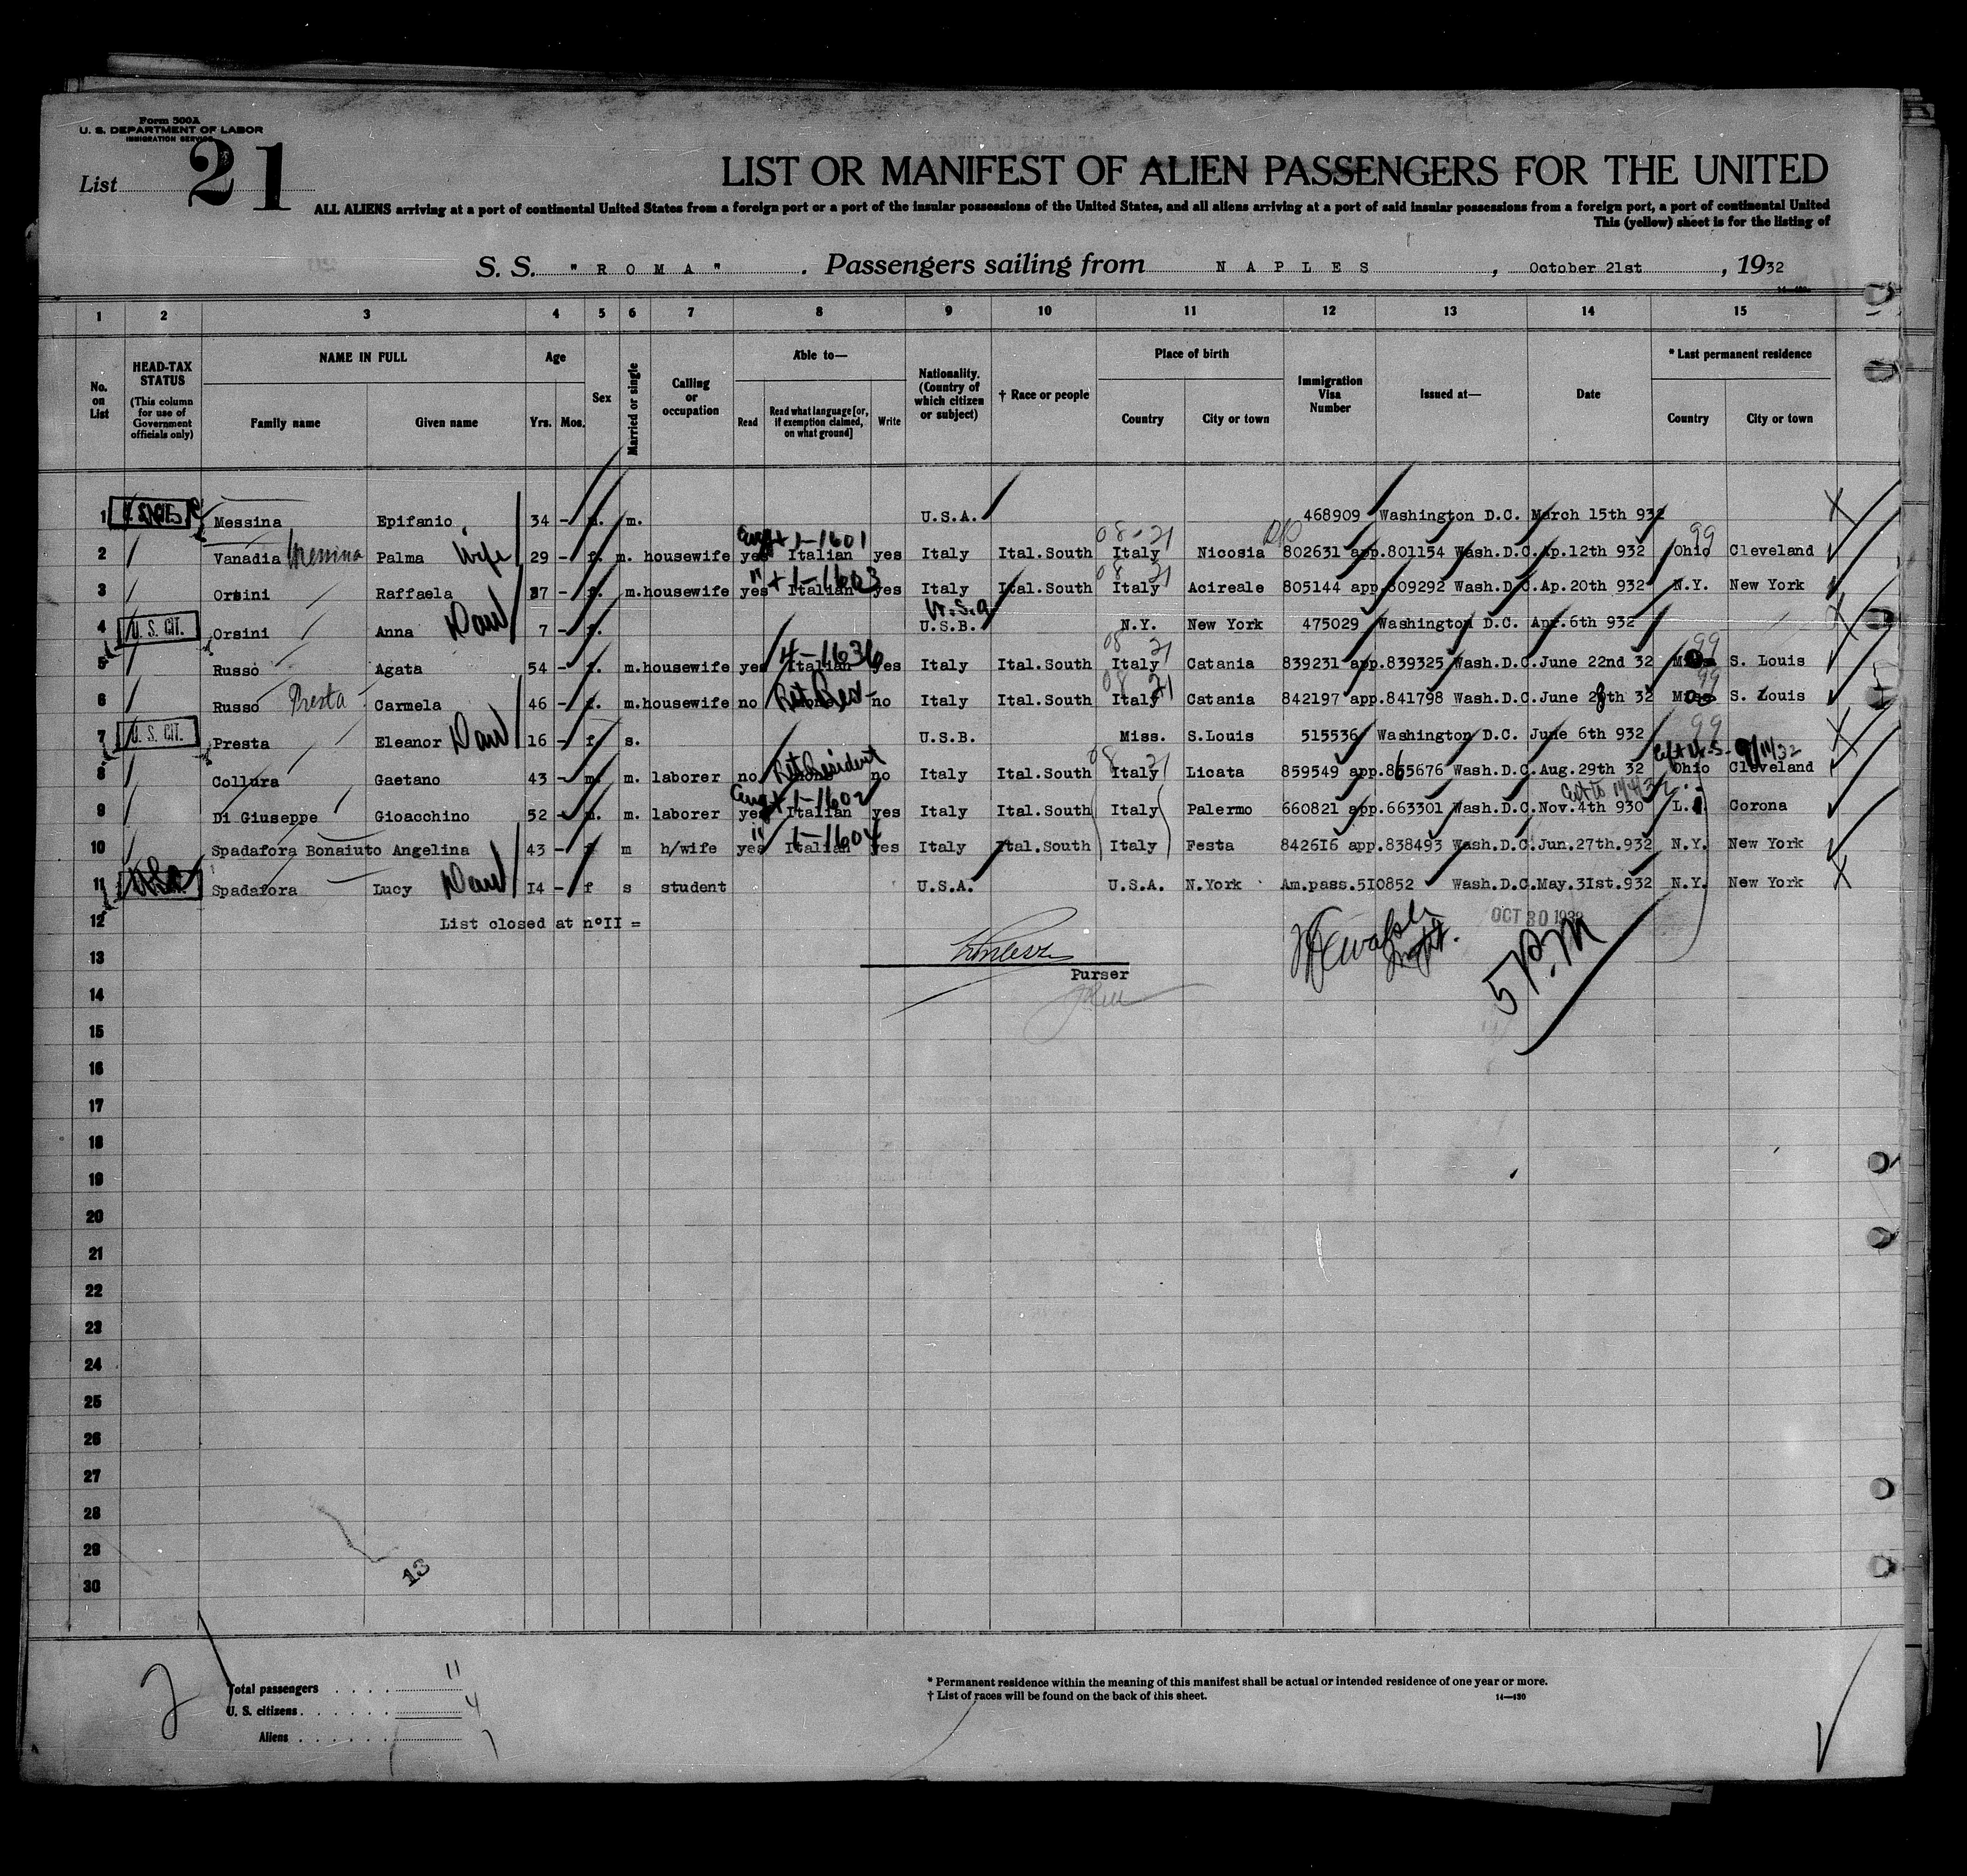 Form 500A
U. S. DEPARTMENT OF LABOR
IMMIGRATION SERVICE
List 21
LIST OR MANIFEST OF ALIEN PASSENGERS FOR THE UNITED
ALL ALIENS arriving at a port of continental United States from a foreign port or a port of the insular possessions of the United States, and all aliens arriving at a port of said insular possessions from a foreign port, a port of continental United
This (yellow) sheet is for the listing of
S. S. "ROMA". Passengers sailing from NAPLES, October 21st, 1932
1 2 3 4 5 6 7 8 9 10 11 12 13 14 15
No. on List
HEAD-TAX STATUS (This column for use of Government officials only)
NAME IN FULL
Family name Given name
Age
Yrs. Mos.
Sex
Married or single
Calling or occupation
Able to—
Read Read what language [or, if exemption claimed, on what ground] Write
Nationality. (Country of which citizen or subject)
† Race or people
Place of birth
Country City or town
Immigration Visa Number
Issued at—
Date
* Last permanent residence
Country City or town
1 Messina Epifanio 34 - m. U.S.A. 468909 Washington D.C. March 15th 932
2 Vanadia Messina Palma Wife 29 - f. m. housewife yes Italian yes Italy Ital.South Italy Nicosia 802631 app.801154 Wash.D.C.Ap.12th 932 Ohio Cleveland
1-1601 08-21 99
3 Orsini Raffaela 37 - f. m.housewife yes Italian yes Italy Ital.South Italy Acireale 805144 app.809292 Wash.D.C.Ap.20th 932 N.Y. New York
1-1603 08 21
4 U. S. CIT. Orsini Anna Dau 7 - f. U.S.B. U.S.A N.Y. New York 475029 Washington D.C. Apr.6th 932
5 Russo Agata 54 - f. m.housewife yes Italian yes Italy Ital.South Italy Catania 839231 app.839325 Wash.D.C.June 22nd 32 S. Louis
4-1636 08 21 99
6 Russo Presta Carmela 46 - f. m.housewife no no Italy Ital.South Italy Catania 842197 app.841798 Wash.D.C.June 28th 32 S. Louis
08 21 99
7 U. S. CIT. Presta Eleanor Dau 16 - f. s. U.S.B. Miss. S.Louis 515536 Washington D.C. June 6th 932
99
8 Collura Gaetano 43 - m. m. laborer no Ret Resident no Italy Ital.South Italy Licata 859549 app.865676 Wash.D.C.Aug.29th 32 Ohio Cleveland
08 21
9 Di Giuseppe Gioacchino 52 - m. m. laborer yes Italian yes Italy Ital.South Italy Palermo 660821 app.663301 Wash.D.C.Nov.4th 930 Corona
1-1602
10 Spadafora Bonaiuto Angelina 43 - f m h/wife yes Italian yes Italy Ital.South Italy Festa 842616 app.838493 Wash.D.C.Jun.27th.932 N.Y. New York
1-1604
11 Spadafora Lucy Dau I4 - f s student U.S.A. U.S.A. N.York Am.pass.5I0852 Wash.D.C.May.3Ist.932 N.Y. New York
12 List closed at n°II =
OCT 30 1932
5 P.M
13
Purser
14
15
16
17
18
19
20
21
22
23
24
25
26
27
28
29
30
13
2
Total passengers 11
U. S. citizens 4
Aliens 7
* Permanent residence within the meaning of this manifest shall be actual or intended residence of one year or more.
† List of races will be found on the back of this sheet.
14—430